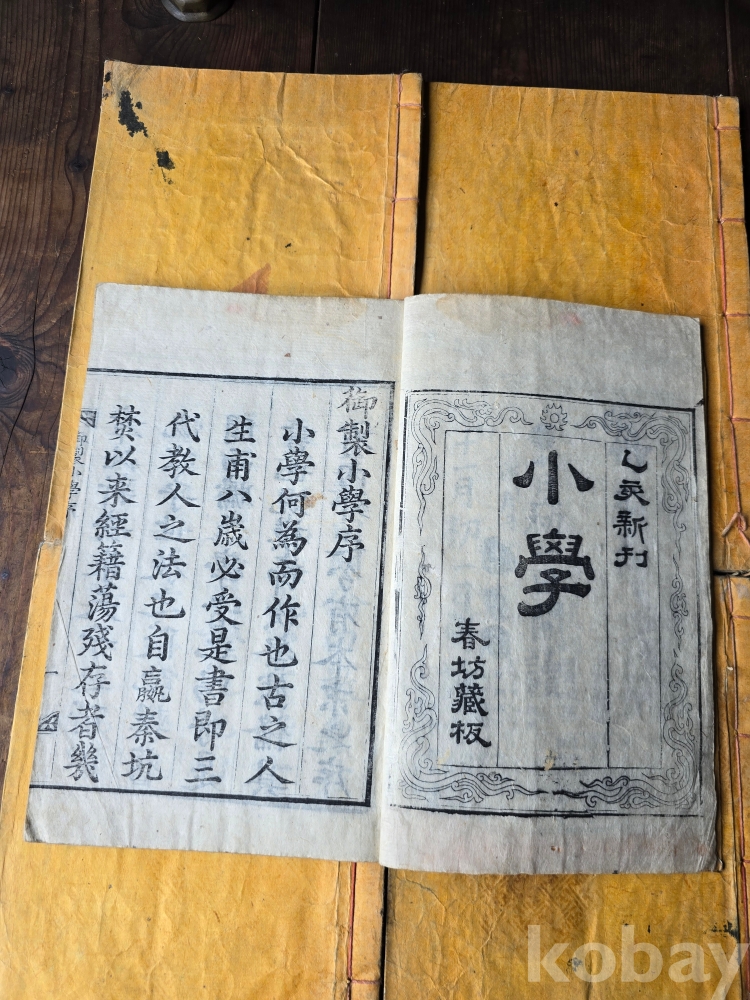 乙亥新刊
小學
春坊藏板
御製小學序
小學何為而作也古之人
生甫八歲必受是書即三
代教人之法也自嬴秦坑
焚以来經籍蕩殘存者幾
御製小學序
kobay